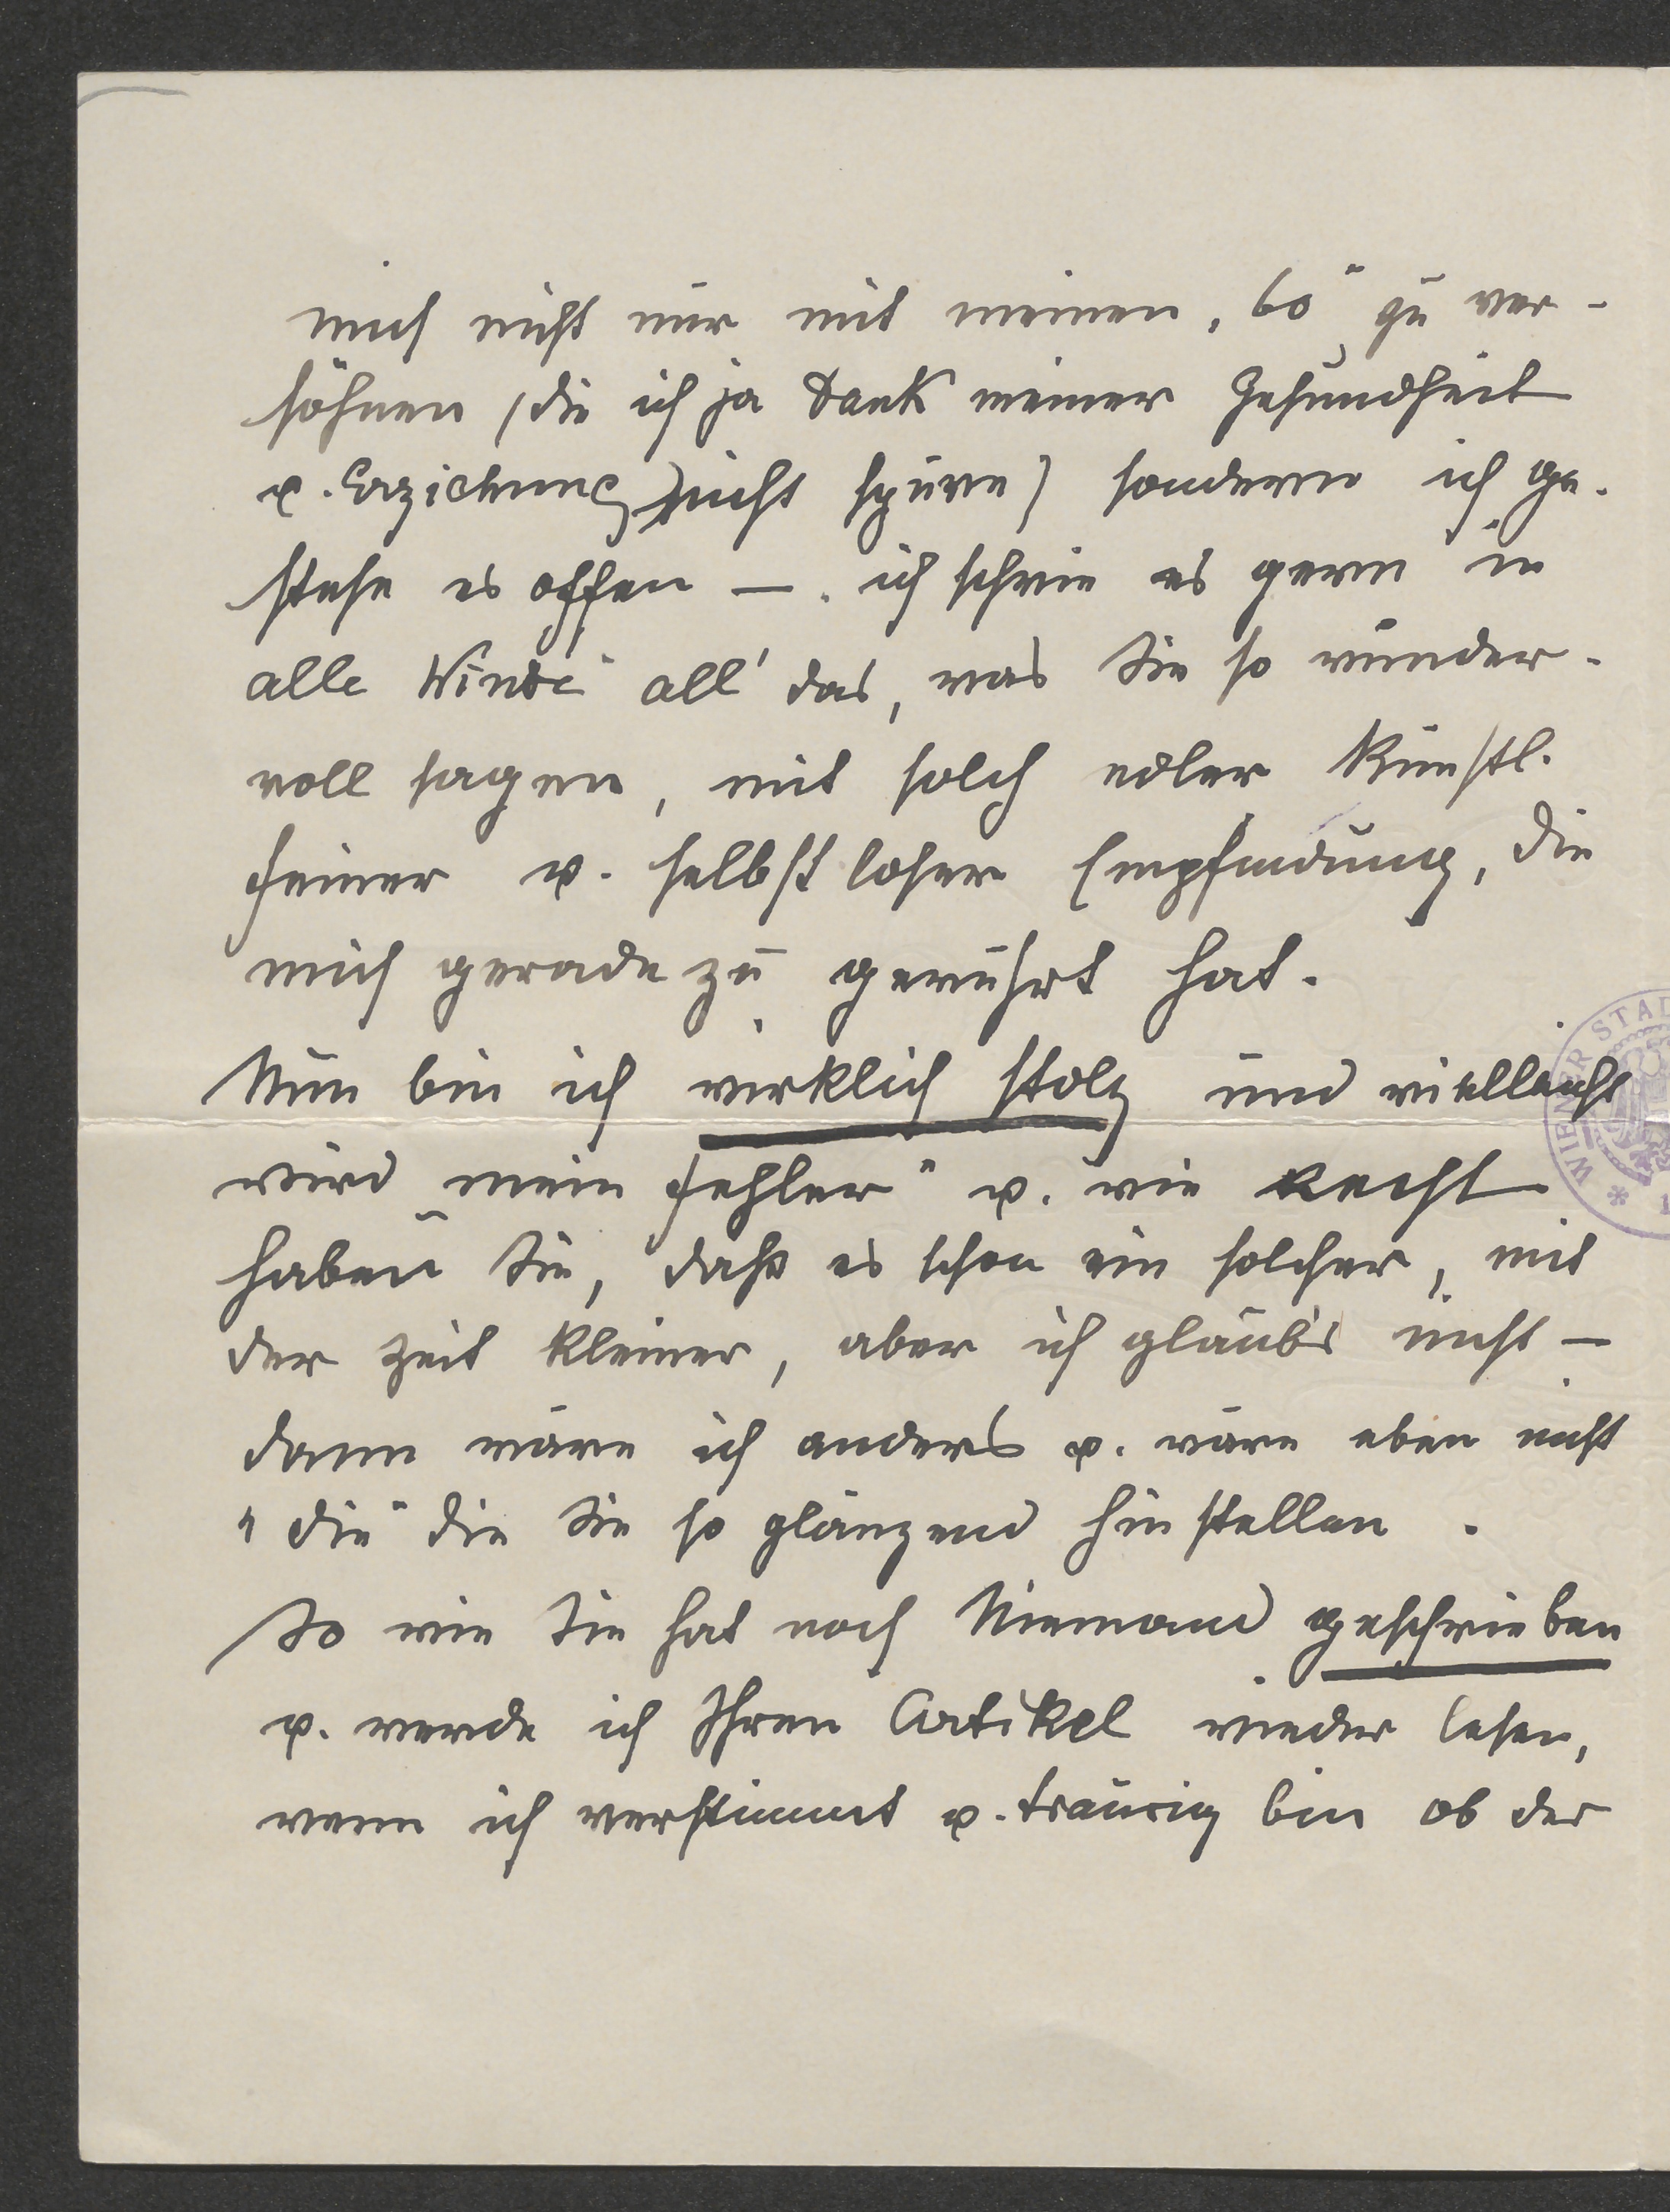 mich nicht nur mit meinen „60“ zu ver-
söhnen (die ich ja Dank meiner Gesundheit
u. Erziehung nicht spüre) sondern ich ge-
stehe es offen — „ich schrie es gern in
alle Winde“ all' das, was Sie so wunder-
voll sagen, mit solch edler künstl.
feiner u. selbstloser Empfindung, die
mich geradezu gerührt hat.
Nun bin ich wirklich stolz und vielleicht
wird mein „Fehler“ u. wie Recht
haben Sie, daß es schon ein solcher, mit
der Zeit kleiner, aber ich glaub's nicht —
dann wäre ich anders u. wäre eben nicht
„die“ die Sie so glänzend hinstellen.
So wie Sie hat noch Niemand geschrieben
u. werde ich Ihren Artikel wieder lesen,
wenn ich verstimmt u. traurig bin ob der
WIENER STAD